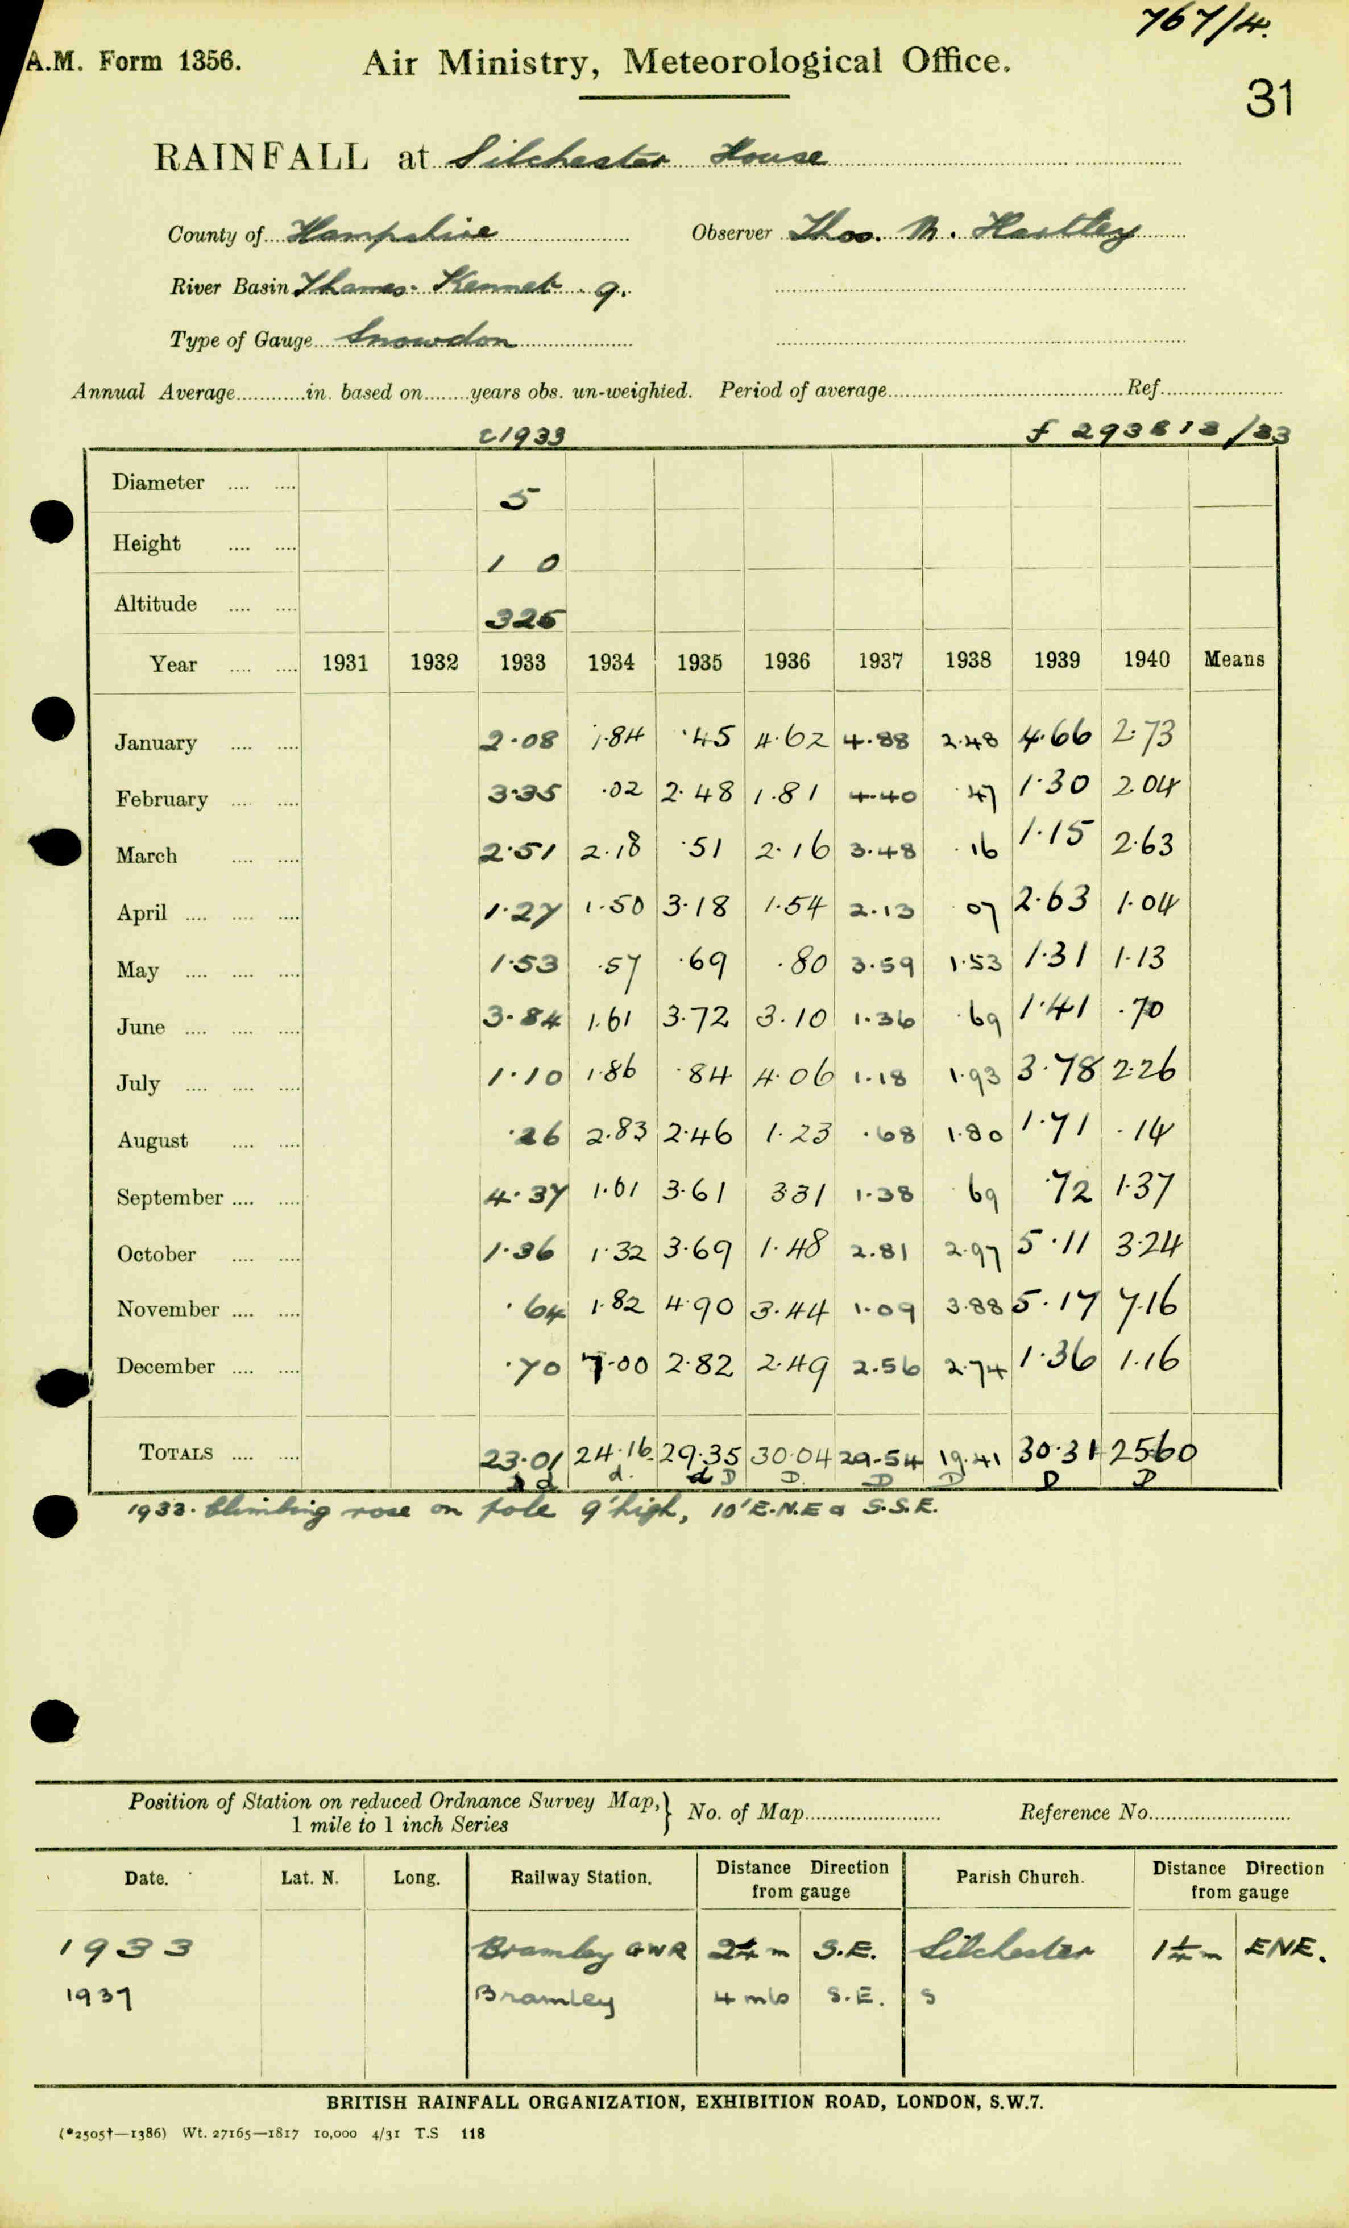 767/4.
A.M. Form 1356. Air Ministry, Meteorological Office.
31
RAINFALL at Silchester House
County of Hampshire Observer Thos. M. Hartley
River Basin Thames. Kennet . 9.
Type of Gauge Snowdon
Annual Average in. based on years obs. un-weighted. Period of average Ref.
c1933 f 293813/33
Diameter 5
Height 1 0
Altitude 325
Year 1931 1932 1933 1934 1935 1936 1937 1938 1939 1940 Means
January 2.08 1.84 .45 4.62 4.88 2.48 4.66 2.73
February 3.35 .02 2.48 1.81 4.40 .47 1.30 2.04
March 2.51 2.18 .51 2.16 3.48 .16 1.15 2.63
April 1.27 1.50 3.18 1.54 2.13 07 2.63 1.04
May 1.53 .57 .69 .80 3.59 1.53 1.31 1.13
June 3.84 1.61 3.72 3.10 1.36 .69 1.41 .70
July 1.10 1.86 .84 4.06 1.18 1.93 3.78 2.26
August .26 2.83 2.46 1.23 .68 1.80 1.71 .14
September 4.37 1.61 3.61 331 1.38 69 .72 1.37
October 1.36 1.32 3.69 1.48 2.81 2.97 5.11 3.24
November .64 1.82 4.90 3.44 1.09 3.88 5.17 7.16
December .70 7.00 2.82 2.49 2.56 2.74 1.36 1.16
TOTALS 23.01 24.16 29.35 30.04 29.54 19.41 30.31 25.60
d d. d D D. D D D D
1933. Climbing rose on pole 9' high, 10' E.N.E & S.S.E.
Position of Station on reduced Ordnance Survey Map, } No. of Map Reference No.
1 mile to 1 inch Series
Date. Lat. N. Long. Railway Station. Distance Direction from gauge Parish Church. Distance Direction from gauge
1933 Bramley GWR 2¼ m S.E. Silchester 1¼ m ENE.
1937 Bramley 4 mls S.E. S
BRITISH RAINFALL ORGANIZATION, EXHIBITION ROAD, LONDON, S.W.7.
(*2505†—1386) Wt. 27165—1817 10,000 4/31 T.S 118